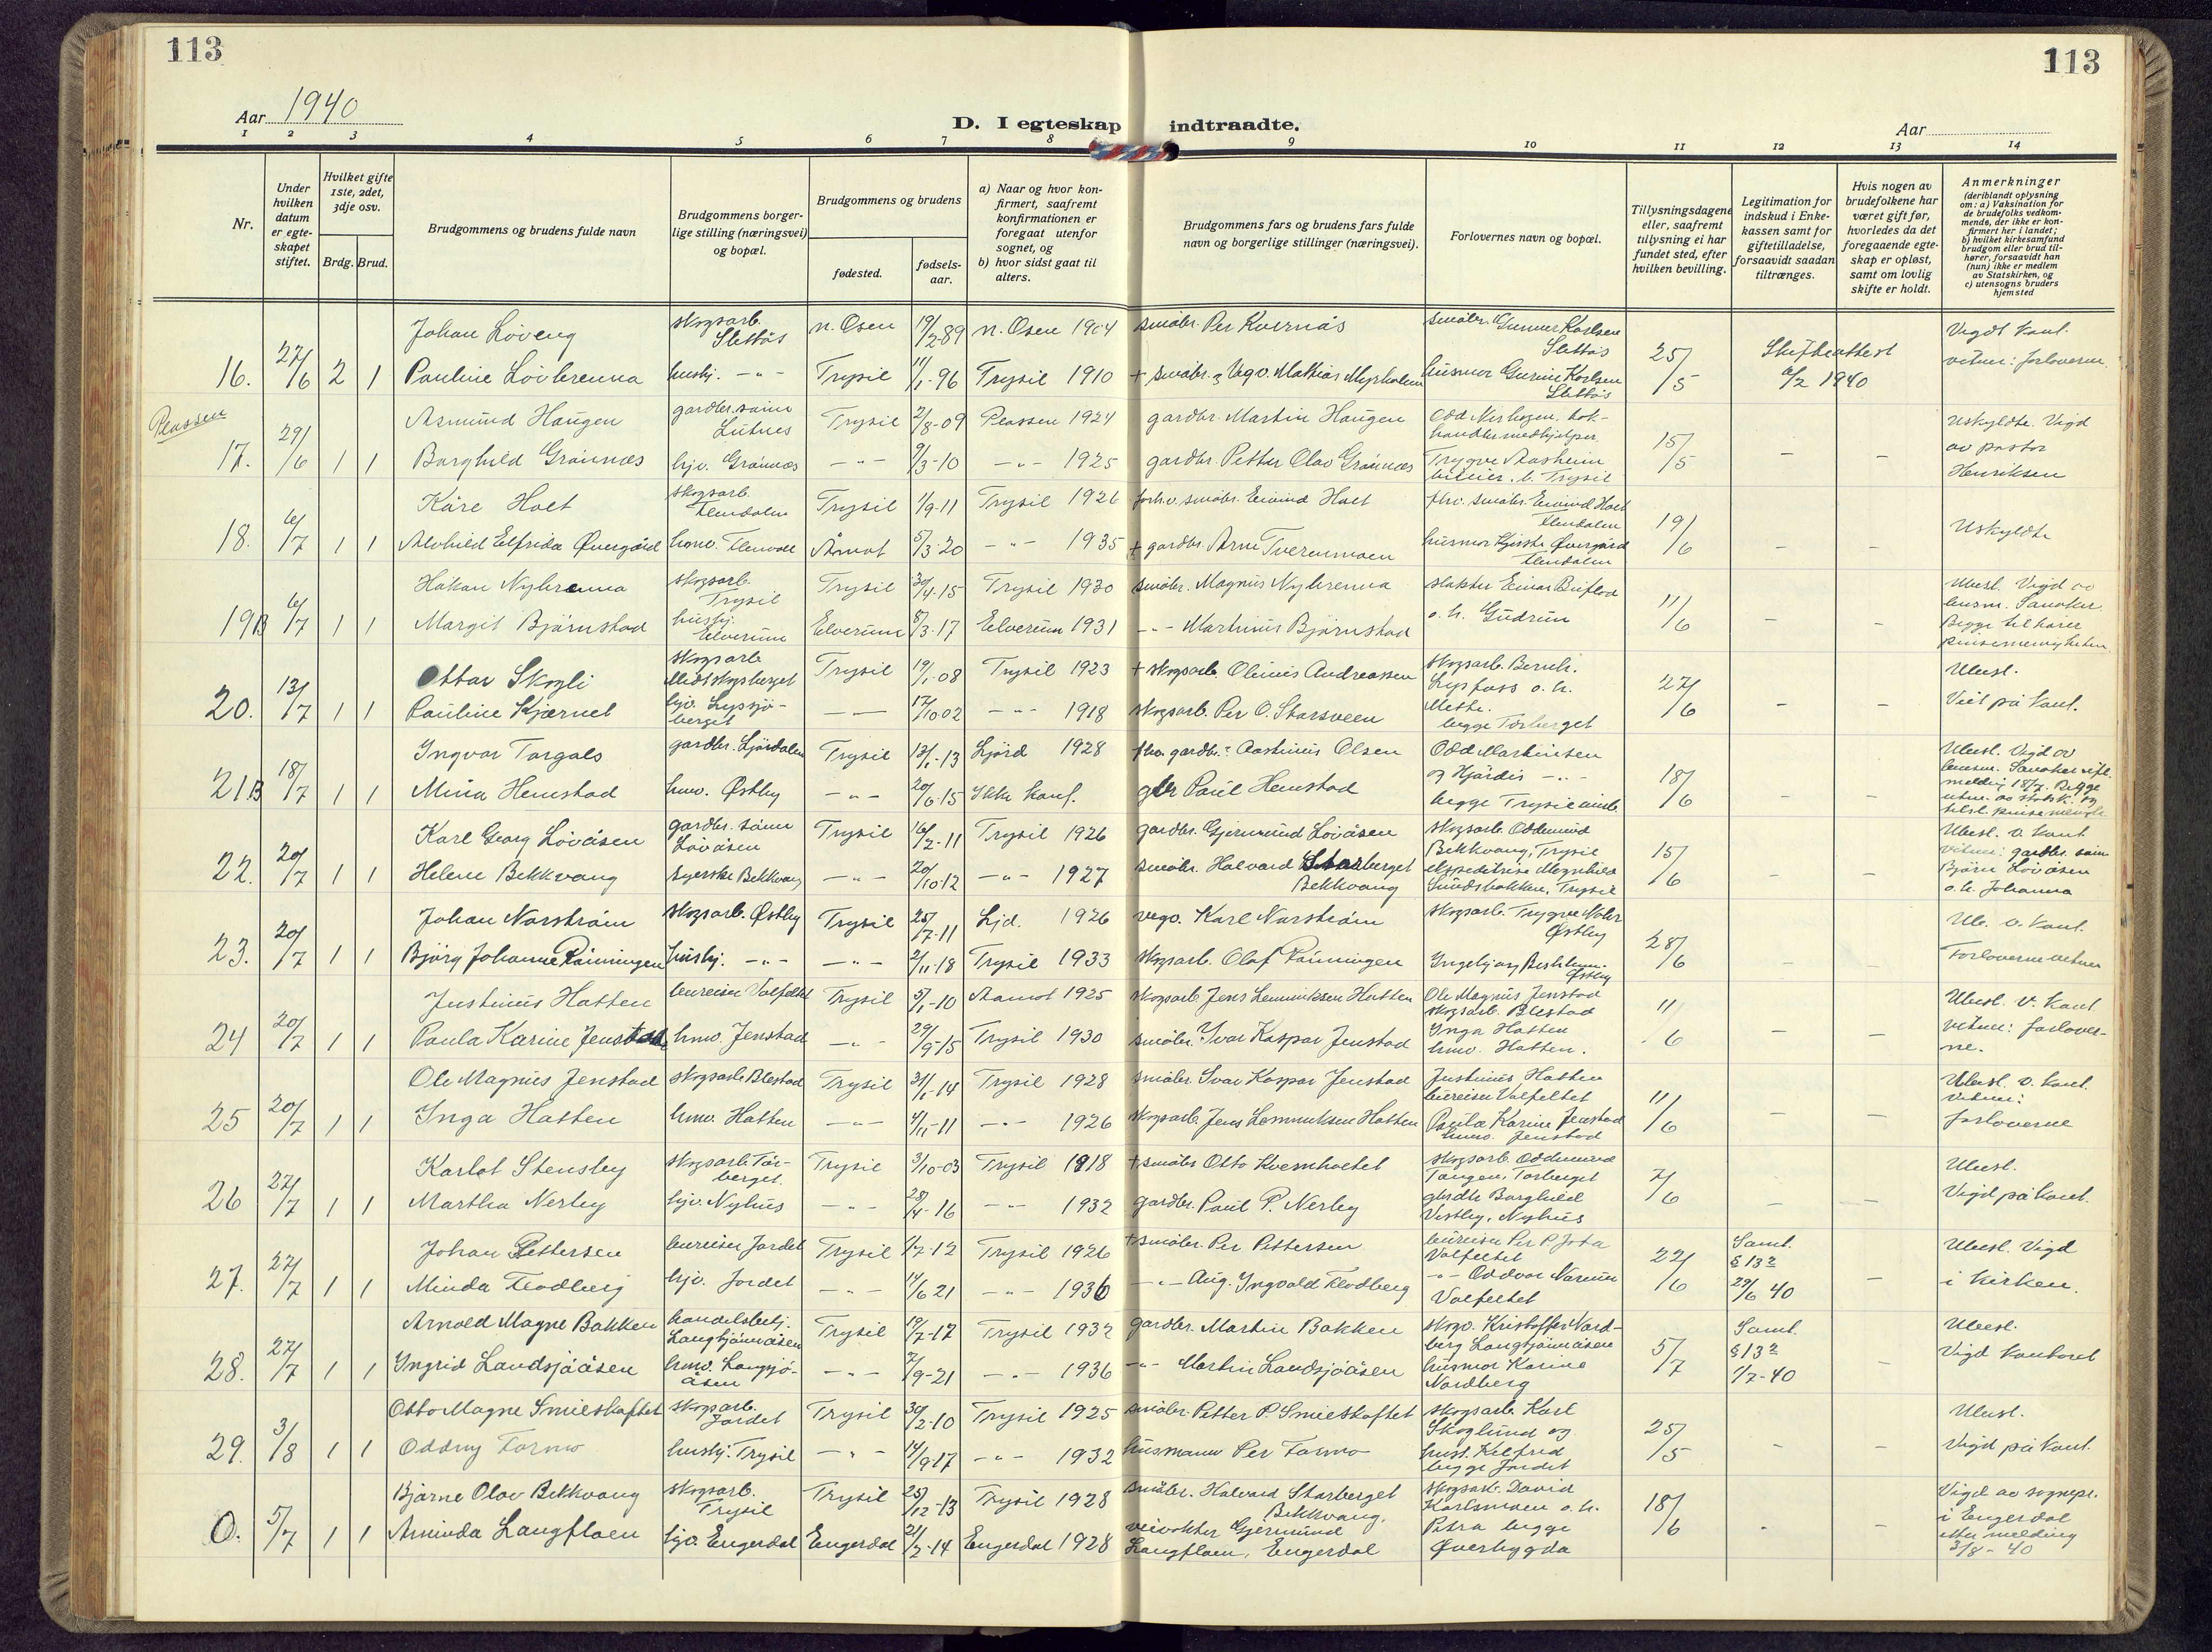 113
113
Aar 1940
D. I egteskap indtraadte.
Aar
1 2 3 4 5 6 7 8 9 10 11 12 13 14
Nr.
Under hvilken datum er egteskapet stiftet.
Hvilket gifte 1ste, 2det, 3dje osv.
Brdg. Brud.
Brudgommens og brudens fulde navn
Brudgommens borgerlige stilling (næringsvei) og bopæl.
Brudgommens og brudens
fødested.
fødselsaar.
a) Naar og hvor konfirmert, saafremt konfirmationen er foregaat utenfor sognet, og
b) hvor sidst gaat til alters.
Brudgommens fars og brudens fars fulde navn og borgerlige stillinger (næringsvei).
Forlovernes navn og bopæl.
Tillysningsdagene eller, saafremt tillysning ei har fundet sted, efter hvilken bevilling.
Legitimation for indskud i Enkekassen samt for giftetilladelse, forsaavidt saadan tiltrænges.
Hvis nogen av brudefolkene har været gift før, hvorledes da det foregaaende egteskap er opløst, samt om lovlig skifte er holdt.
Anmerkninger (deriblandt oplysning om: a) Vaksination for de brudefolks vedkommende, der ikke er konfirmert her i landet; b) hvilket kirkesamfund brudgom eller brud tilhører, forsaavidt han (nun) ikke er medlem av Statskirken, og c) utensogns bruders hjemsted
Johan Løveng skogsarb. Slettås n. Osen 19/2-89 n. Osen 1904 småbr. Per Kvernås småbr. Gunnar Karlsen Slettås Vigd kont.
16. 27/6 2 1 Pauline Lövbrenna hushj. -"- Trysil 11/1-96 Trysil 1910 + småbr. Mathias Myrholen husmor Gurine Karlsen Slettås 25/5 Skifteattest 6/2 1940 vitner: forloverne
Plassen
Asmund Haugen gardbr. sønn Lutnes Trysil 2/8-09 Plassen 1924 gardbr. Martin Haugen Odd Nerhagen, bokhandlermedhjelper Uskyldte. Vigd
17. 29/6 1 1 Borghild Grönnæs hjv. Grönnæs -"- 9/3-10 -"- 1925 gardbr. Petter Olav Grönnæs Trygve Aasheim Trysil 15/5 - - av pastor Henriksen
Kåre Holt skogsarb. Flendalen Trysil 1/9-11 Trysil 1926 forh.v. småbr. Eivind Holt fhv. småbr. Eivind Holt Flendalen
18. 6/7 1 1 Alvhild Elfrida Övergård hmv. Flenvoll Åmot 5/3-20 -"- 1935 + gardbr. Arne Tverenmoen husmor Övergård Flendalen 19/6 - - Uskyldte
Håkon Nybrenna skogsarb. Trysil Trysil 30/4-15 Trysil 1930 småbr. Magnus Nybrenna slakter Einar Briflod Ubesl. Vigd av
19B 6/7 1 1 Margit Björnstad hushj. Elverum Elverum 8/3-17 Elverum 1931 -"- Martinus Björnstad o. h. Gudrun 11/6 - - lensm. Sanaker. Begge tilhører pinsemenigheten.
Ottar Skogli skogsarb. Midtskogsberget Trysil 19/1-08 Trysil 1923 + skogsarb. Olinus Andreassen skogsarb. Bernh. Ubesl.
20. 13/7 1 1 Pauline Kjærnet hjv. Lyssjöberget -"- 17/10-02 -"- 1918 skogsarb. Per O. Storsveen Lysfoss o. h. Mathe. begge Törberget 27/6 - - Viet på kont.
Ingvar Torgals gardbr. Ljördalen Trysil 13/1-13 Ljörd 1928 fhv. gardbr. Aasmus Olsen Odd Martinsen Ubesl. Vigd av
21B 18/7 1 1 Mina Hemstad hmv. Østby -"- 20/6-15 Ikke konf. gbr Paul Hemstad og Hjördis -"- begge Trysil 18/6 - - lensm. Sanaker melding 18/7. Begge utm. av statsk. og tilsl. pinsemenigh.
Karl Georg Lövåsen gardbr. sönn Lövåsen Trysil 16/2-11 Trysil 1926 gardbr. Gjermund Lövåsen skogsarb. Oddmund Bekkvang, Trysil Ubesl. v. kont
22. 20/7 1 1 Helene Bekkvang syerske Bekkvang -"- 20/10-12 -"- 1927 småbr. Halvard Storberget Bekkvang ekspeditrise Magnhild Sundsbakken, Trysil 15/6 - - vitner: gardbr. sönn Björn Lövåsen o. h. Johanna
Johan Norström skogsarb. Østby Trysil 25/7-11 Ljd. 1926 vegv. Karl Norström skogsarb. Trygve Østby Ub. v. kont.
23. 20/7 1 1 Björg Johanne Rönningen hushj. -"- -"- 2/11-18 Trysil 1933 skogsarb. Olaf Rönningen Ingebjørg Østby 28/6 - - Forloverne vitner
Justinus Hatten bureiser Volfeltet Trysil 5/1-10 Aamot 1925 skogsarb. Jens Lemmiksen Hatten Ole Magnus Jenstad skogsarb. Blestad Ubesl. v. kont
24 20/7 1 1 Paula Karine Jenstad hmv. Jenstad -"- 29/9-15 Trysil 1930 småbr. Ivar Kaspar Jenstad Inga Hatten hmv. Hatten. 11/6 - - vitner: forloverne.
Ole Magnus Jenstad skogsarb. Blestad Trysil 31/1-14 Trysil 1928 småbr. Ivar Kaspar Jenstad Justinus Hatten bureiser Volfeltet Ubesl. v. kont. vitner:
25 20/7 1 1 Inga Hatten hmv. Hatten -"- 4/11-11 -"- 1926 skogsarb. Jens Lemmiksen Hatten Paula Karine Jenstad hmv. Jenstad 11/6 - - forloverne
Karlot Stensby skogsarb. Törberget. Trysil 3/10-03 Trysil 1918 + småbr Otto Kvernholtet skogsarb. Oddmund Tangen, Törberget Ubesl.
26 27/7 1 1 Martha Nerby hjv. Nyhus -"- 28/4-16 -"- 1932 gardbr. Paul P. Nerby Borghild Vestby, Nyhus 7/6 - - Vigd på kont.
Johan Pettersen bureiser Jordet Trysil 1/7-12 Trysil 1926 + småbr. Per Pettersen bureiser Per P. Volfeltet Samt. § 13² Ubesl. Vigd
27. 27/7 1 1 Minda Flodberg hjv. Jordet -"- 14/6 21 -"- 1936 -"- Aug. Ingvald Flodberg -"- Oddvar Volfeltet 22/6 29/6 40 - i kirken.
Arnold Magne Bakken handelsbetj. Langtjönnåsen Trysil 19/7-17 Trysil 1932 gardbr. Martin Bakken skogv. Kristoffer Nordberg Langtjönnåsen Samt. § 13² Ubesl.
28. 27/7 1 1 Ingrid Landsjöåsen hmv. Langsjöåsen -"- 7/9-21 -"- 1936 -"- Martin Landsjöåsen husmor Karine Nordberg 5/7 1/7-40 - Vigd kontoret
Otto Magne Smieskaftet skogsarb. Jordet Trysil 30/2-10 Trysil 1925 småbr. Petter P. Smieskaftet skogsarb. Karl Skoglund og Ubesl.
29. 3/8 1 1 Oddny Formo hushj. Trysil -"- 14/9-17 -"- 1932 husmann Per Formo hust. Alfred begge Jordet 25/5 - - Vigd på kont.
Bjarne Olav Bekkvang skogsarb. Trysil Trysil 25/12-13 Trysil 1928 småbr. Halvard Storberget Bekkvang. skogsarb. David Karlsmoen o. h. Vigd av sognepr. i Engerdal
0. 5/7 1 1 Aminda Langfloen hjv. Engerdal Engerdal 21/2-14 Engerdal 1928 veivokter Gjermund Langfloen, Engerdal Petra begge Øverbygda 18/6 - - etter melding 3/8-40